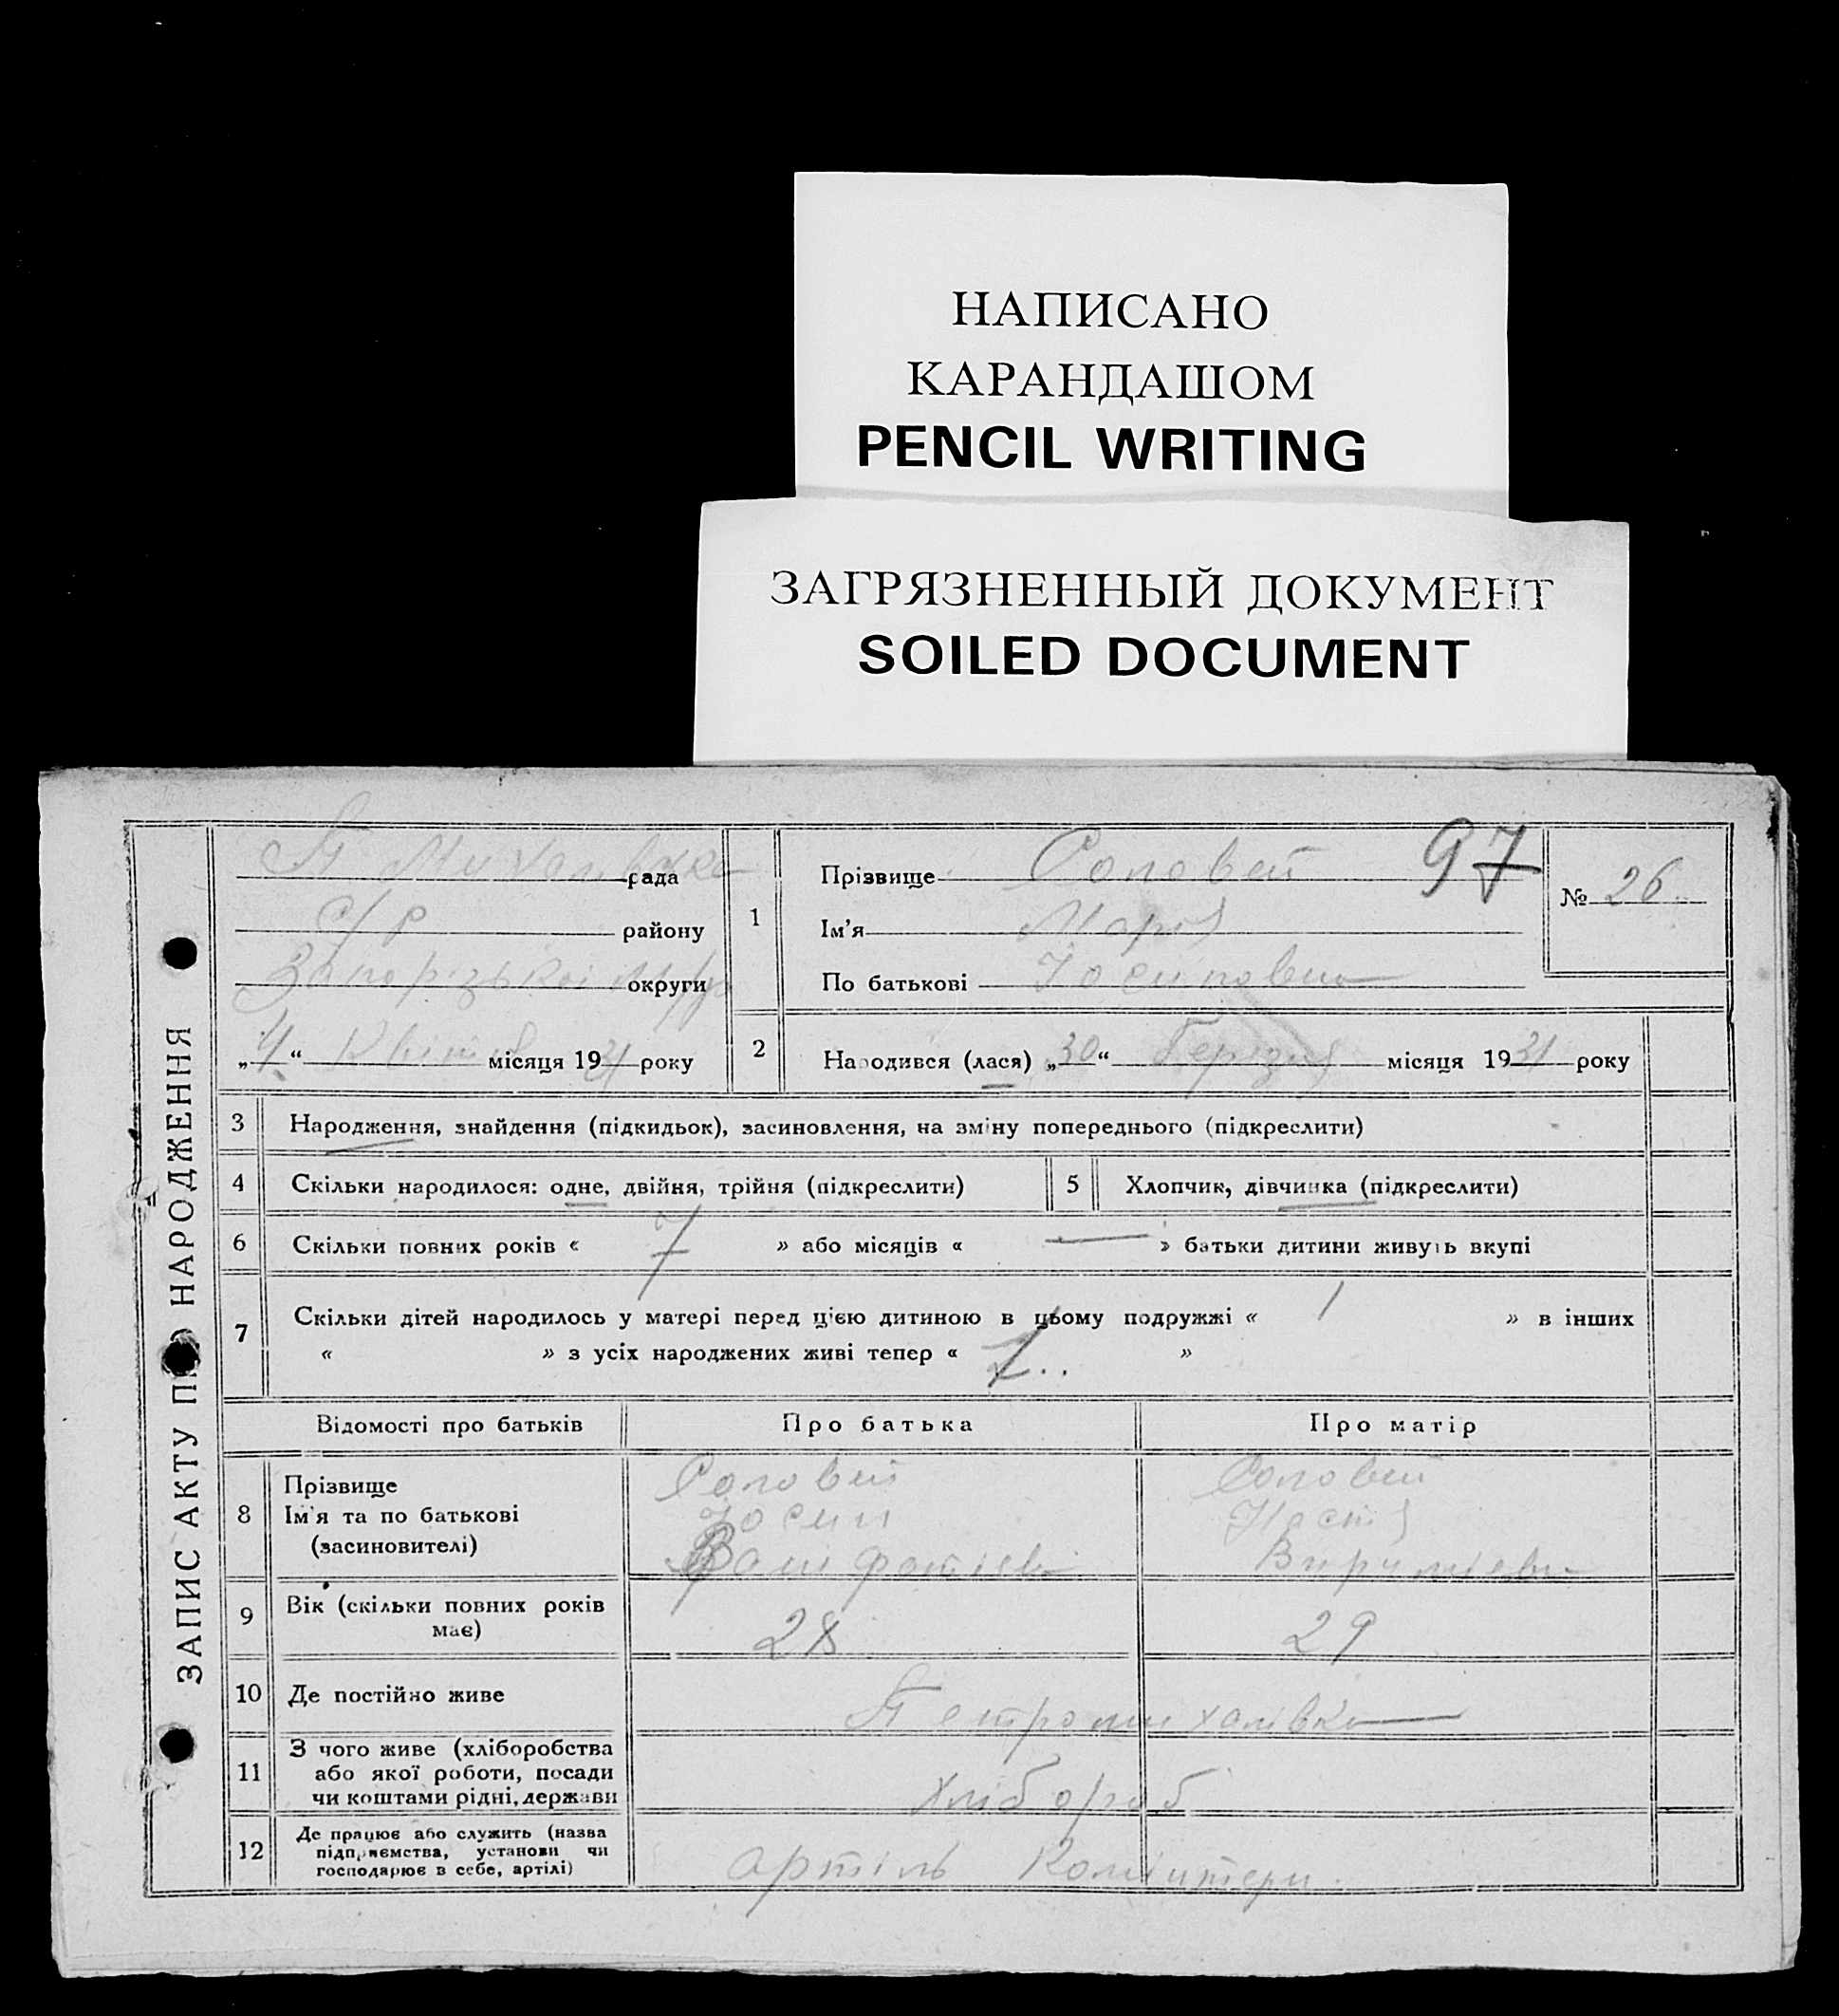 НАПИСАНО
КАРАНДАШОМ
PENCIL WRITING
ЗАГРЯЗНЕННЫЙ ДОКУМЕНТ
SOILED DOCUMENT
ЗАПИС АКТУ ПРО НАРОДЖЕННЯ
рада
С/Р району
Запорізької округи
„4“ Квітня місяця 1931 року
97
№ 26
1 Прізвище Соловей
Ім'я Марія
По батькові Йосиповна
2 Народився (лася) „30“ Березня місяця 1931 року
3 Народження, знайдення (підкидьок), засиновлення, на зміну попереднього (підкреслити)
4 Скільки народилося: одне, двійня, трійня (підкреслити) 5 Хлопчик, дівчинка (підкреслити)
6 Скільки повних років « 7 » або місяців « — » батьки дитини живуть вкупі
7 Скільки дітей народилось у матері перед цією дитиною в цьому подружжі « 1 » в інших
« » з усіх народжених живі тепер « 1 »
Відомості про батьків Про батька Про матір
8 Прізвище Соловей Соловей
Ім'я та по батькові Йосип Настя
(засиновителі)
9 Вік (скільки повних років має) 28 29
10 Де постійно живе Петромихалівка
11 З чого живе (хліборобства
або якої роботи, посади
чи коштами рідні, держави хлібороб
12 Де працює або служить (назва
підприємства, установи чи
господарює в себе, артілі) артіль Комінтерн